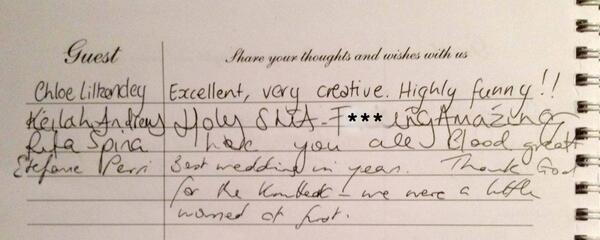 Guest Share your thoughts and wishes with us
Chloe Excellent, very creative. Highly funny!!
Keilah Andrews Holy Shit F***ing Amazing
Rita Spina you all great
Stefanie Perri Best wedding in year. Thank God
for the - we were a little
worried at first.